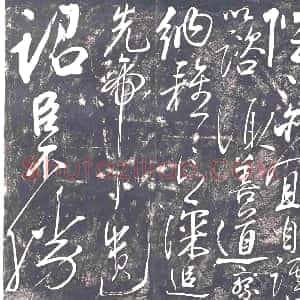 陛下亦宜自謀
以諮諏善道察
納雅言深追
先帝遺
詔臣不勝